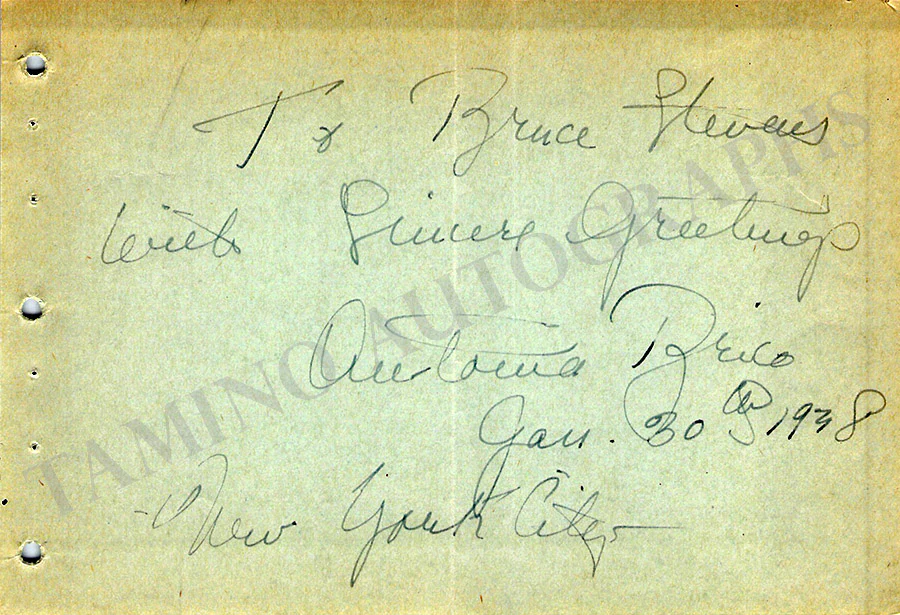 To Bruce Stevens
With Sincere Greetings
Antonia Brico
Jan. 30th 1938
- New York City -
TAMINO AUTOGRAPHS